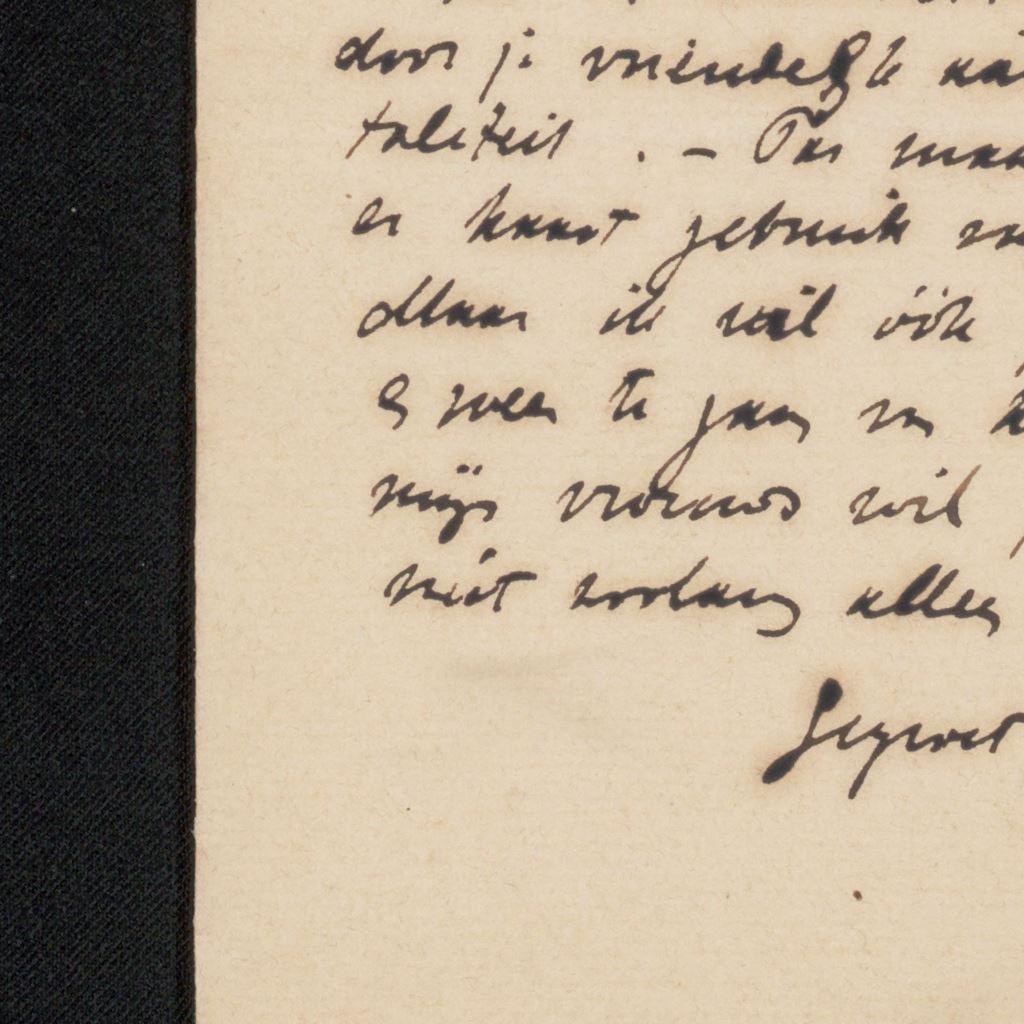 door je vriendelijke
taliteit. — Pas
er haast gebruik
Maar ik wil óók
er weer te gaan
mijn vrouw wil
niet zoolang alleen
Gegroet